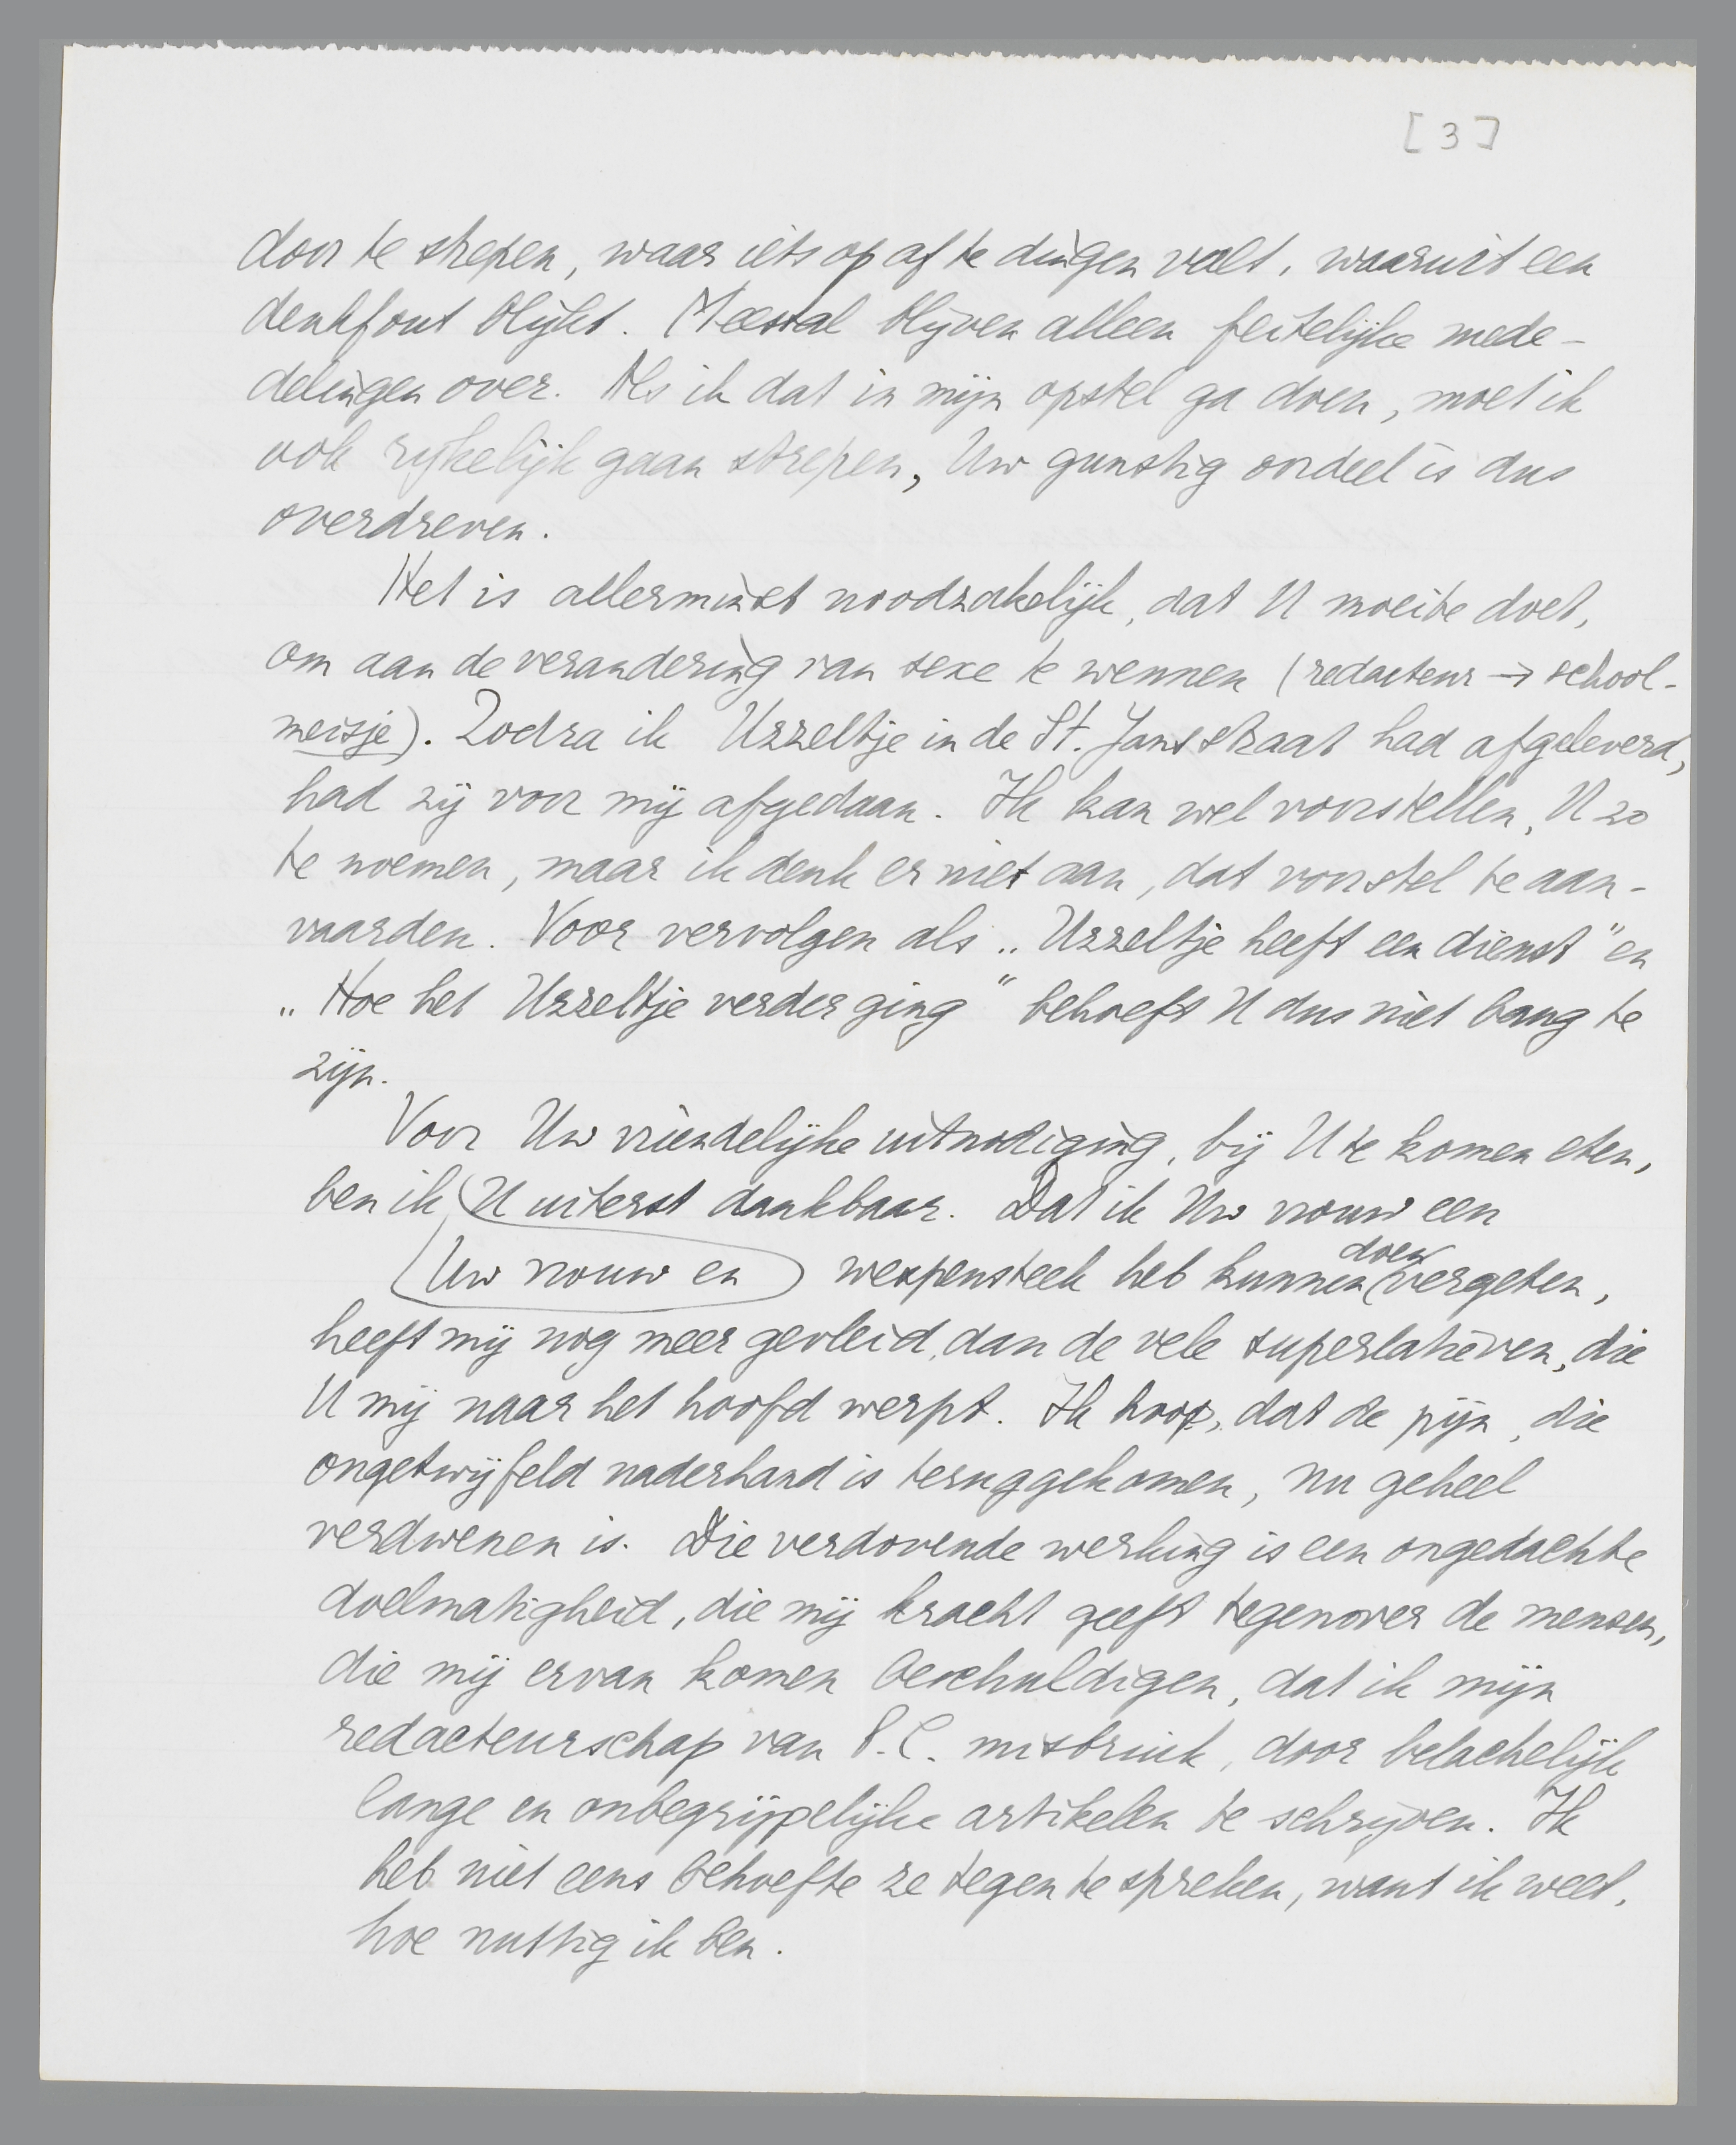 [3]
door te strepen, waar iets op af te dingen valt, waaruit een
denkfout blijkt. Meestal blijven alleen feitelijke mede-
delingen over. Als ik dat in mijn opstel ga doen, moet ik
ook rijkelijk gaan strepen, Uw gunstig oordeel is dus
overdreven.
Het is allerminst noodzakelijk, dat U moeite doet,
om aan de verandering van sexe te wennen (redacteur → school-
meisje). Zodra ik Uzzeltje in de St. Jansstraat had afgeleverd,
had zij voor mij afgedaan. Ik kan wel voorstellen, U zo
te noemen, maar ik denk er niet aan, dat voorstel te aan-
vaarden. Voor vervolgen als „Uzzeltje heeft een dienst" en
„Hoe het Uzzeltje verder ging" behoeft U dus niet bang te
zijn.
Voor Uw vriendelijke uitnodiging, bij U te komen eten,
ben ik U uiterst dankbaar. Dat ik Uw vrouw een
Uw vrouw en wespensteek heb kunnen doen vergeten,
heeft mij nog meer gevleid, dan de vele superlatieven, die
U mij naar het hoofd werpt. Ik hoop, dat de pijn, die
ongetwijfeld naderhand is teruggekomen, nu geheel
verdwenen is. Die verdovende werking is een ongedachte
doelmatigheid, die mij kracht geeft tegenover de mensen,
die mij ervan komen beschuldigen, dat ik mijn
redacteurschap van P.C. misbruik, door belachelijk
lange en onbegrijpelijke artikelen te schrijven. Ik
heb niet eens behoefte ze tegen te spreken, want ik weet,
hoe nuttig ik ben.